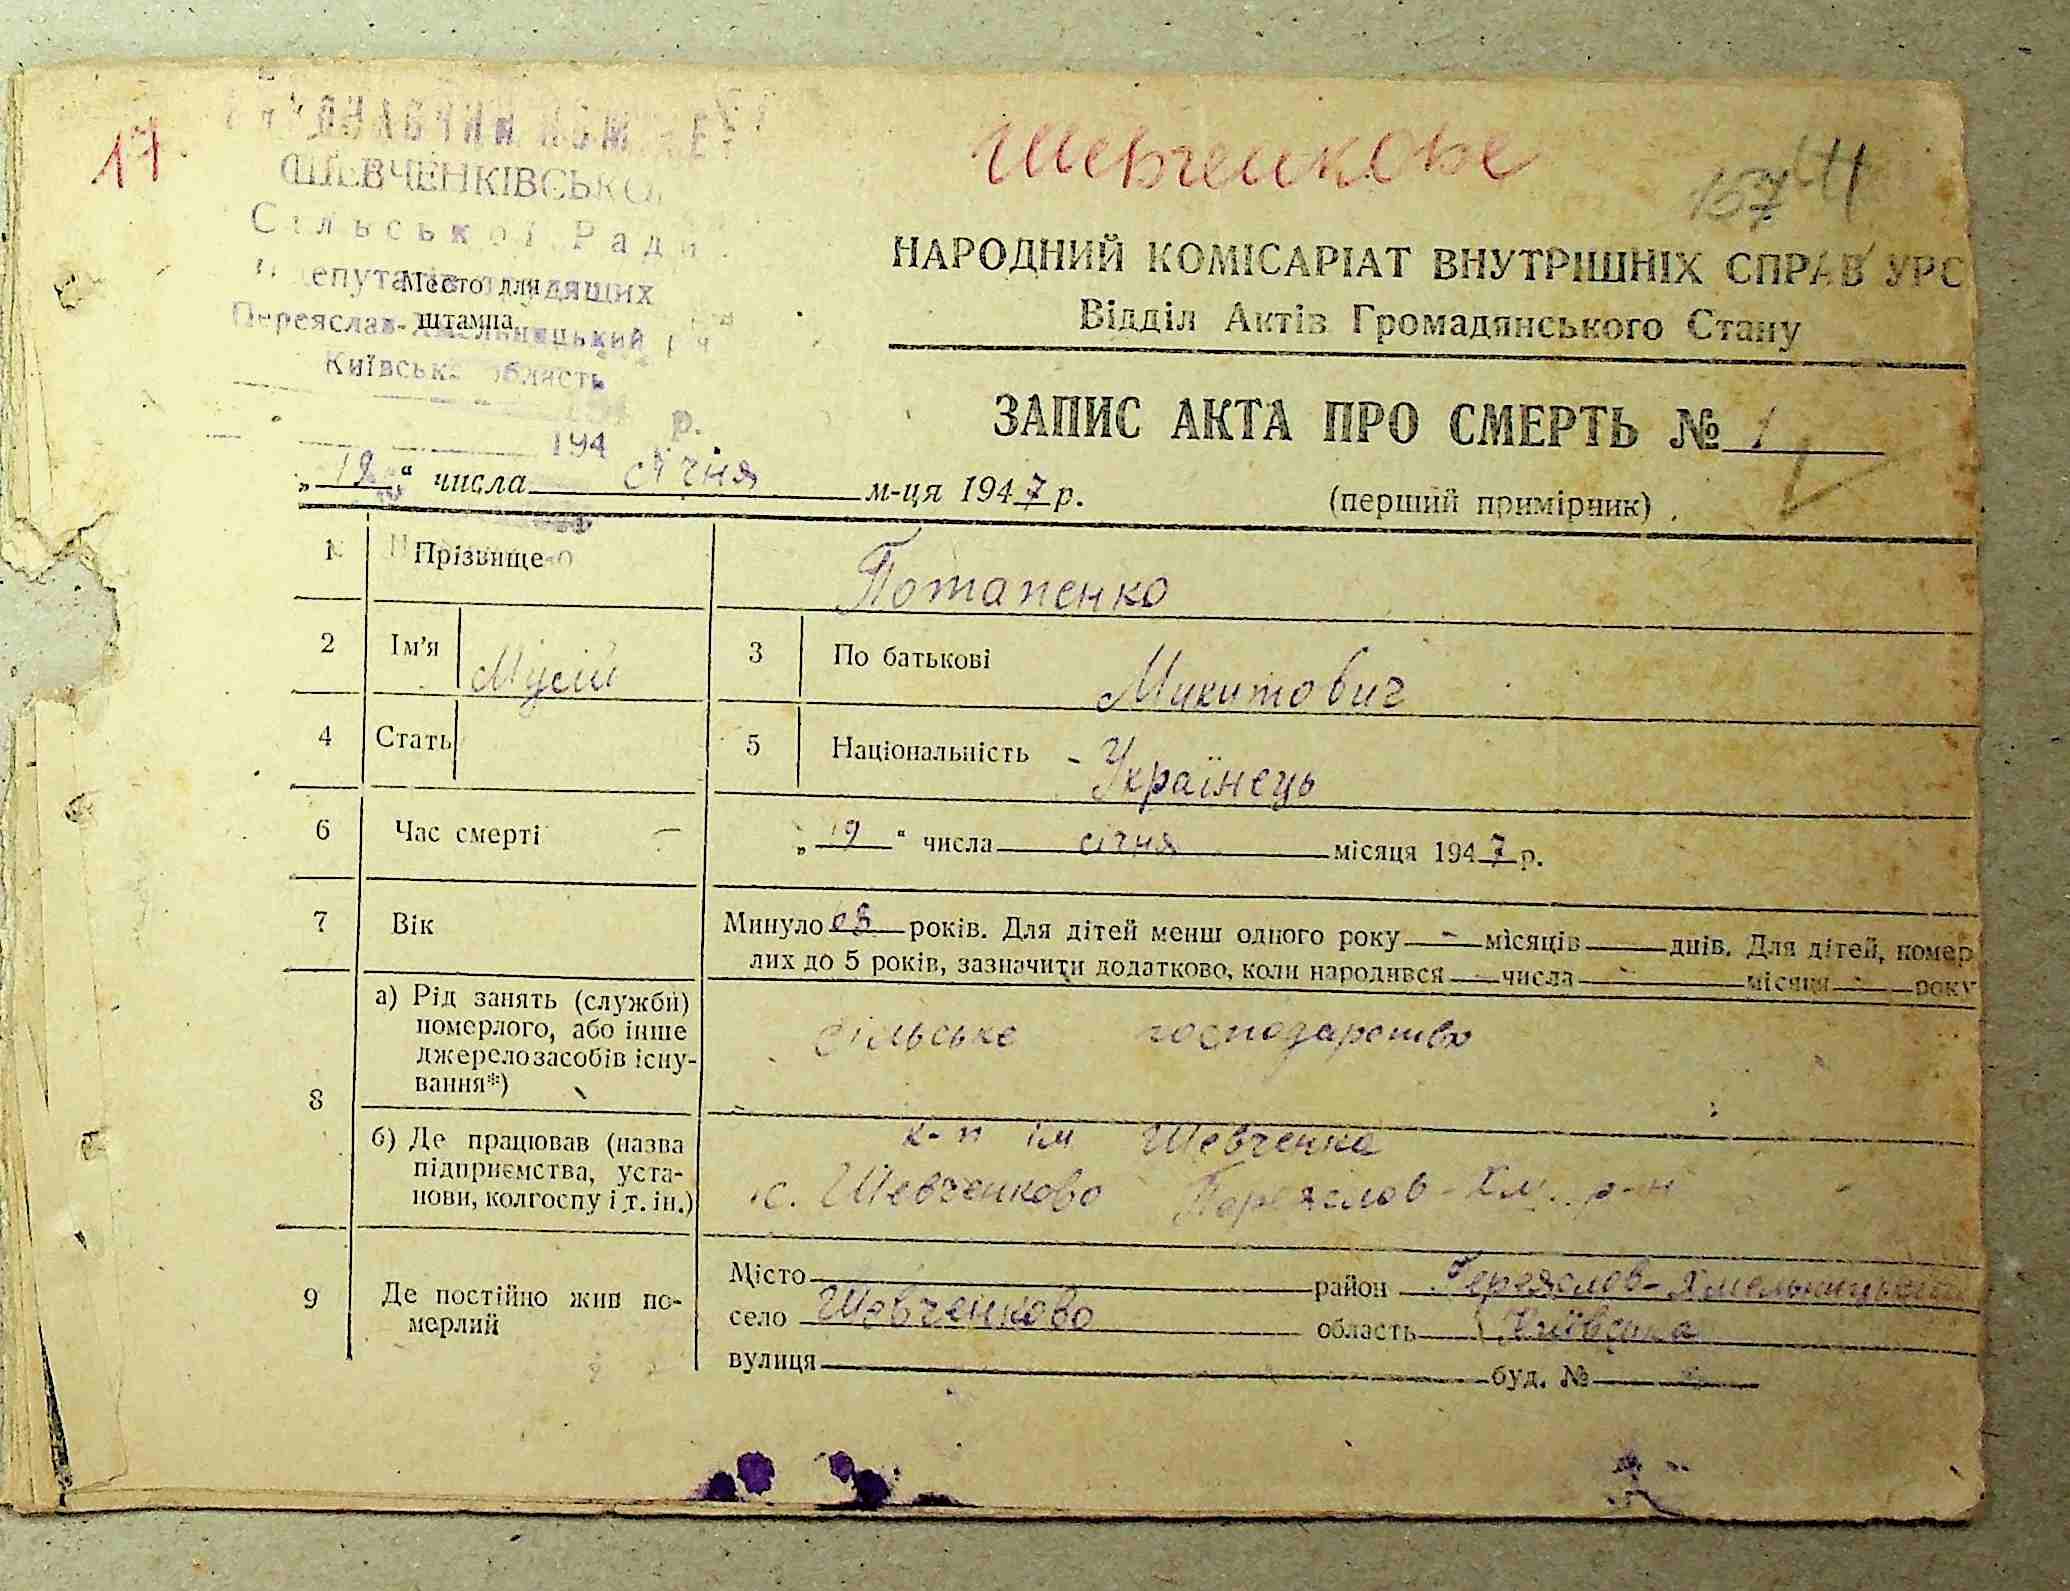 17.
Шевченкове
ШЕВЧЕНКІВСЬКОЇ
Сільської Ради
депутатів трудящих
Место для
штампа
Переяслав-Хмельницький р-н
Київська область
194 р.
НАРОДНИЙ КОМІСАРІАТ ВНУТРІШНІХ СПРАВ УРС
Відділ Актів Громадянського Стану
ЗАПИС АКТА ПРО СМЕРТЬ № 1
„19“ числа січня м-ця 1947 р.
(перший примірник)
1 Прізвище Потапенко
2 Ім'я Мусій 3 По батькові Микитович
4 Стать 5 Національність - Українець
6 Час смерті „19“ числа січня місяця 1947 р.
7 Вік Минуло років. Для дітей менш одного року - місяців днів. Для дітей, помер
лих до 5 років, зазначити додатково, коли народився числа - місяця - року
8 а) Рід занять (служби)
померлого, або інше
джерело засобів існу-
вання*)
сільське господарство
б) Де працював (назва
підприємства, уста-
нови, колгоспу і т. ін.)
к-п ім Шевченка
с. Шевченково Переяслов-Хм. р-н
9 Де постійно жив по-
мерлий
Місто район Переяслов-Хмельницький
село Шевченково область Київська
вулиця буд. № -